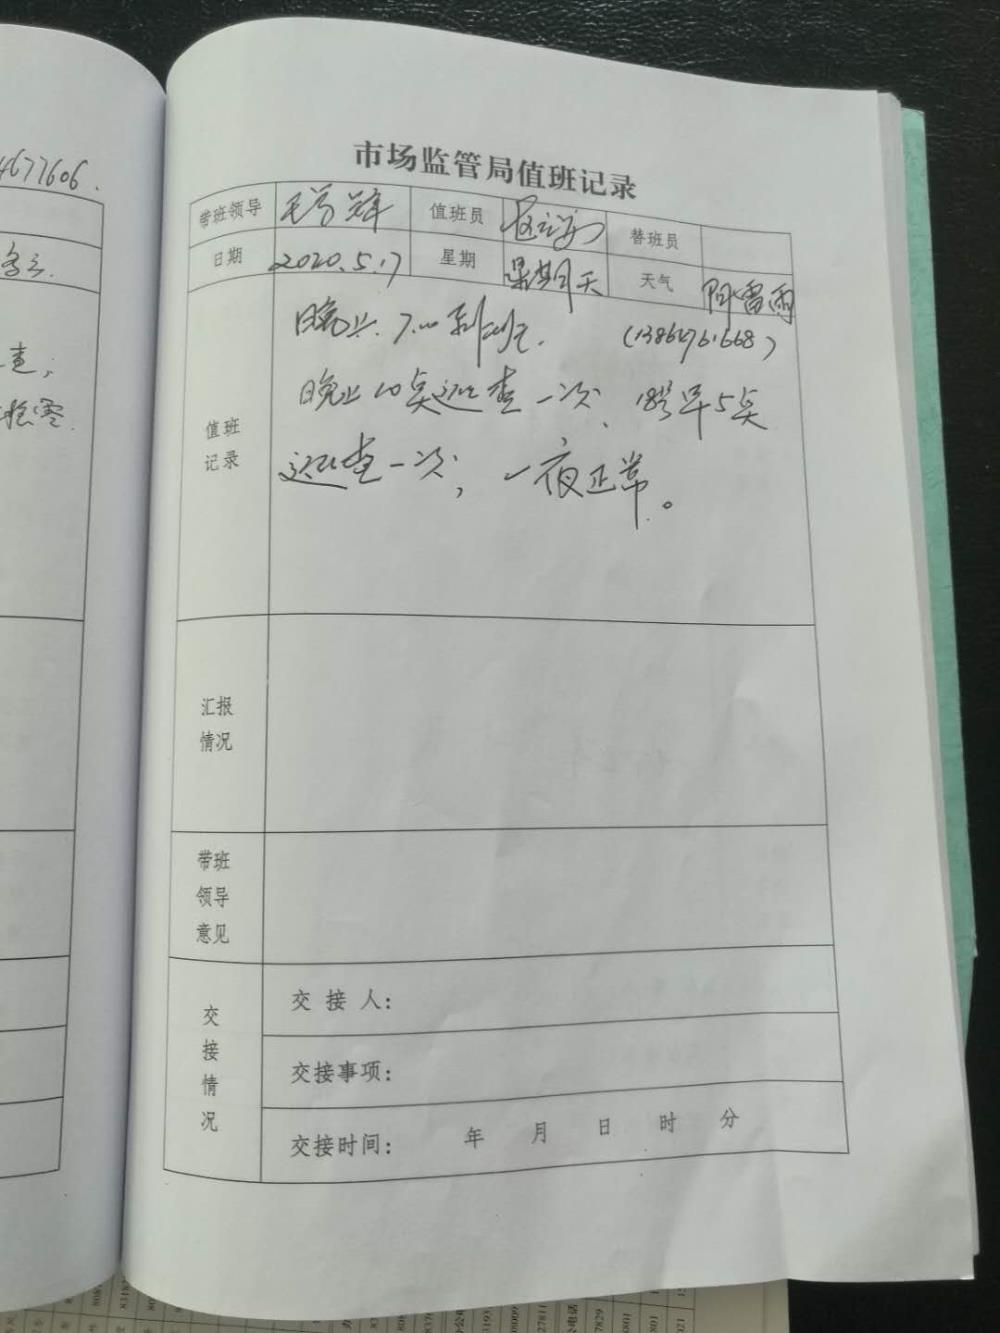 4677606.
查；
市场监管局值班记录
带班领导 值班员 替班员
日期 2020.5.17 星期 星期天 天气 阵雷雨
晚上7:00到班. (13864761668)
晚上10点巡查一次、18号早5点
巡查一次，一夜正常。
值班
记录
汇报
情况
带班
领导
意见
交接情况
交接人：
交接事项：
交接时间： 年 月 日 时 分